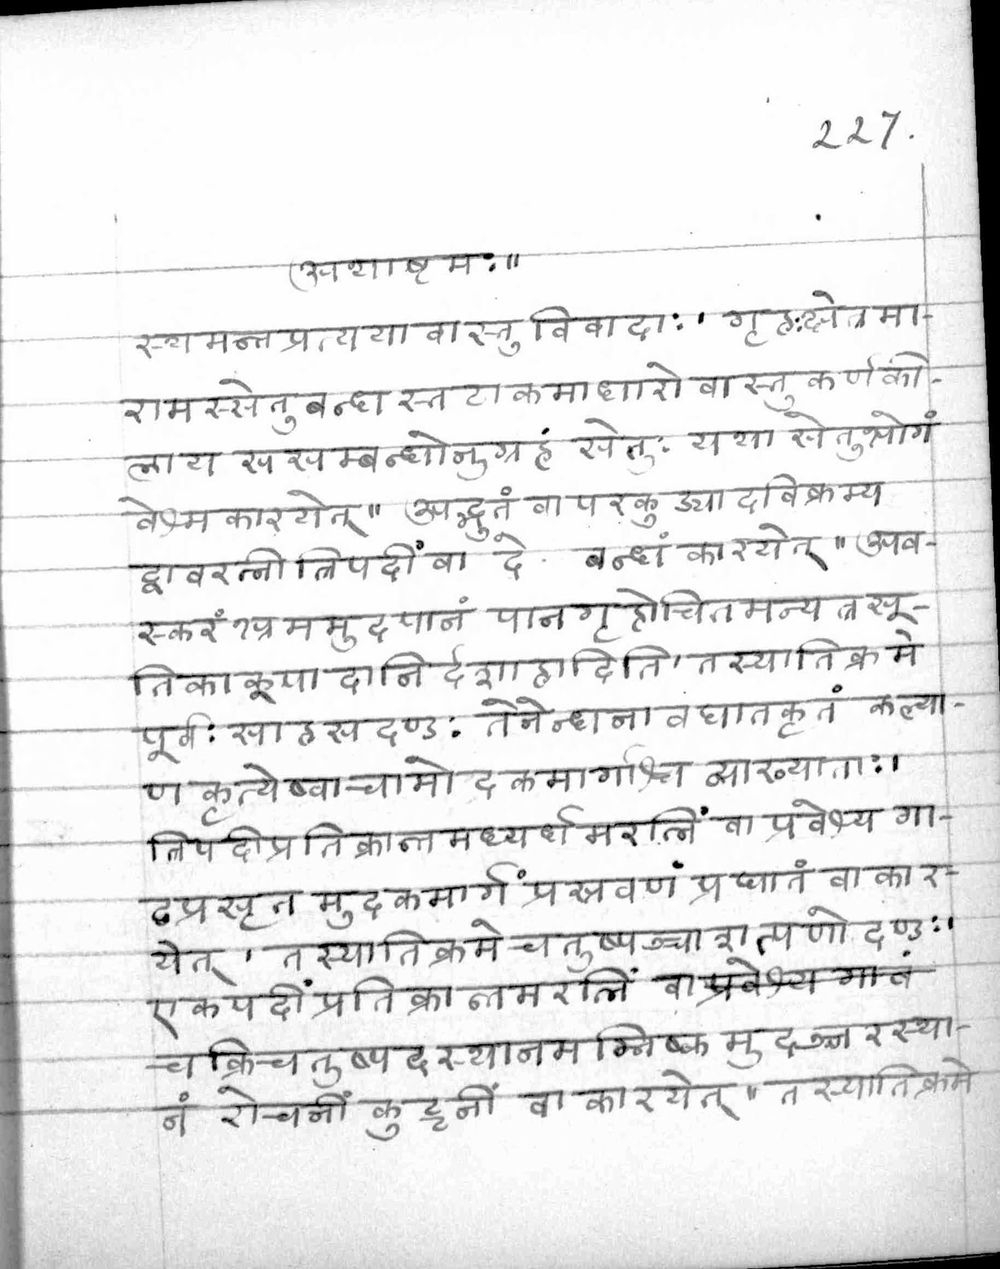 227.
अथाष्टमः॥
स्यमन्तप्रत्यया वास्तुविवादाः। गृहःक्षेत्रमा-
रामस्सेतुबन्धस्तटाकमाधारो वास्तुकर्णकी-
लाय ससम्बन्धोनुग्रहं सेतुः यथा सेतुभोगं
वेश्म कारयेत्॥ अद्भुतं वा परकुड्यादविक्रम्य
द्वावरत्नी त्रिपदीं वा दे बन्धं कारयेत्॥ अव-
स्करं भ्रममुदपानं पानगृहोचितमन्यत्र सू-
तिकाकूपादानिर्दशाहादिति। तस्यातिक्रमे
पूर्वः साहसदण्डः तेनेन्धनावघातकृतं कल्या-
णकृत्येष्वाचामोदकमार्गाश्च व्याख्याताः।
त्रिपदीप्रतिक्रान्तमध्यर्धमरत्निं वा प्रवेश्य गा-
ढप्रसृतमुदकमार्गं प्रस्रवणं प्रघातं वा कार-
येत्। तस्यातिक्रमे चतुष्पञ्चाशत्पणो दण्डः।
एकपदीं प्रतिक्रान्तमरत्निं वा प्रवेश्य गावं
चक्रिचतुष्पदस्थानमग्निष्कमुदञ्जरस्था-
नं रोचनीं कुट्टनीं वा कारयेत्॥ तस्यातिक्रमे